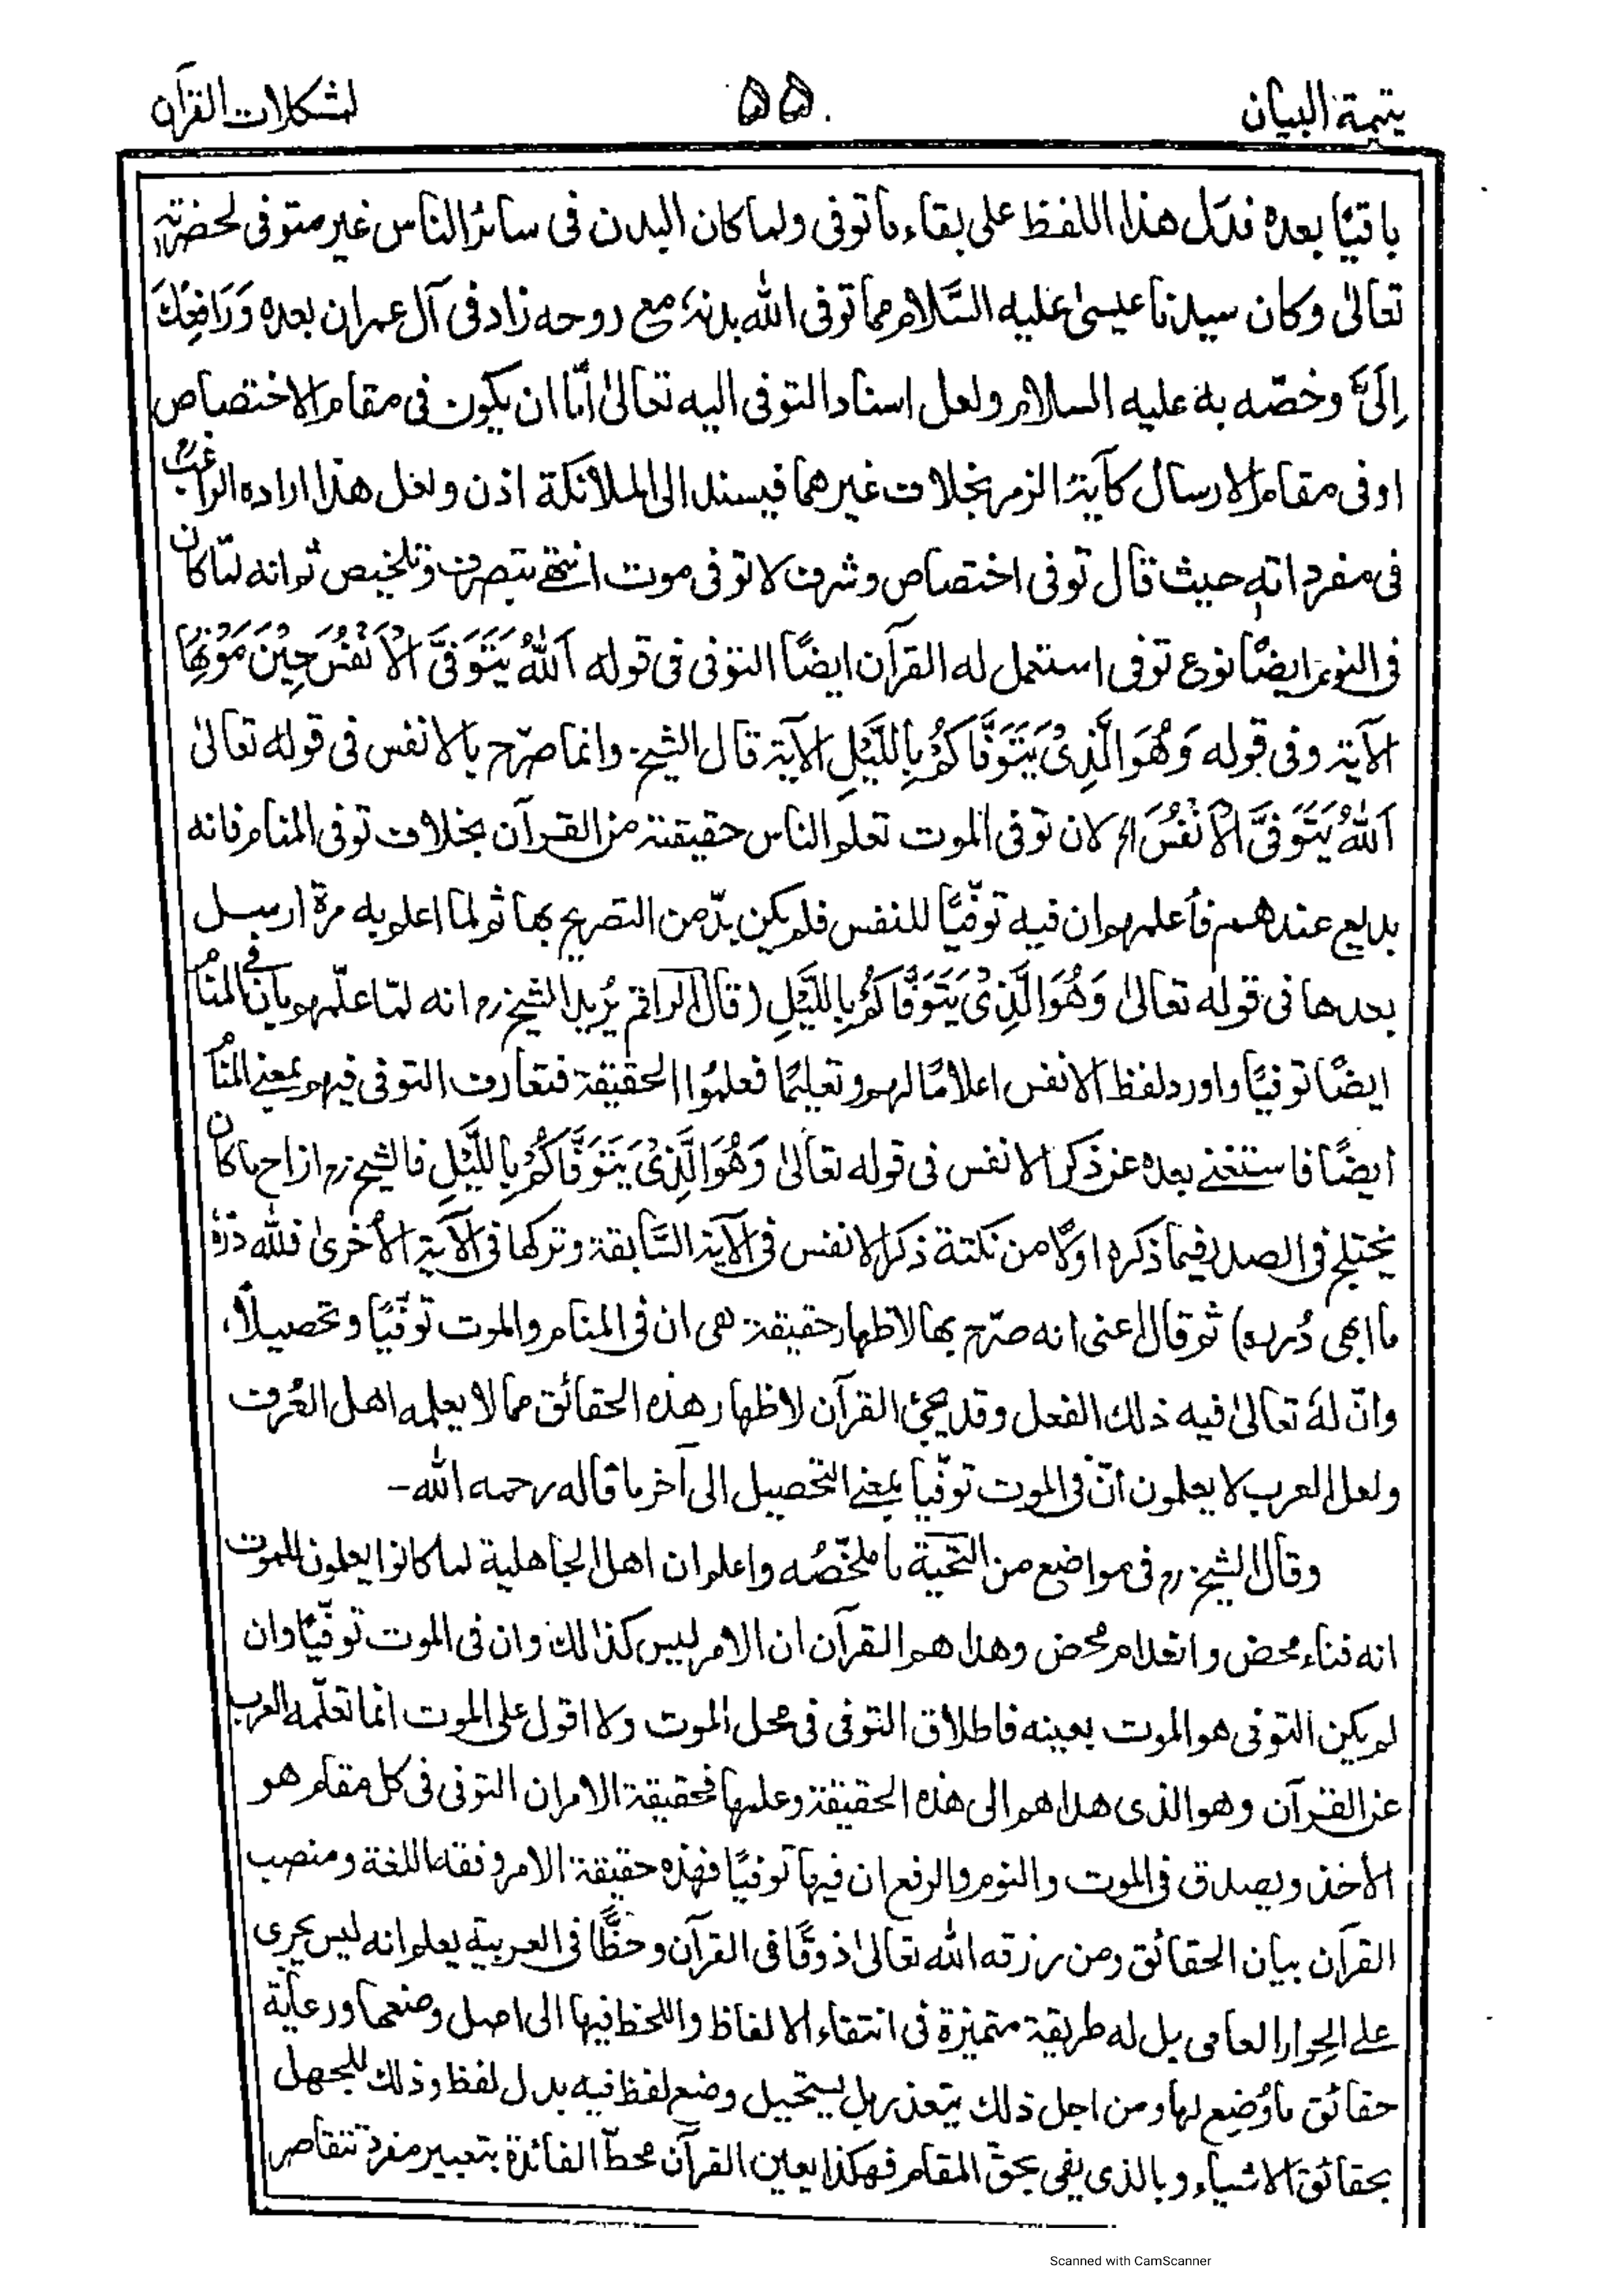 يتيمة البيان ۵۵ لمشكلات القرآن
باقيًا بعده فدلّ هذا اللفظ على بقاء ما توفى ولما كان البدن فى سائر الناس غير متوفى لحضرته
تعالىٰ وكان سيدنا عيسىٰ عليه السّلام مما توفى الله بدنه مع روحه زاد فى آل عمران بعده وَرَافِعُكَ
اِلَىَّ وخصّه به عليه السلام ولعل اسناد التوفى اليه تعالىٰ امّا ان يكون فى مقام الاختصاص
او فى مقام الارسال كآية الزمر بخلاف غيرهما فيسند الى الملائكة اذن ولعل هذا اراده الراغب
فى مفرداته حيث قال توفى اختصاص وشرف لا توفى موت انتهى بتصرف وتلخيص ثم انه لمّا كان
فى النوم ايضًا نوع توفى استعمل له القرآن ايضًا التوفى فى قوله اَللّٰهُ يَتَوَفَّى الْاَنْفُسَ حِيْنَ مَوْتِهَا
الآية وفى قوله وَهُوَ الَّذِىْ يَتَوَفَّاكُمْ بِاللَّيْلِ الآية قال الشيخ وانما صرّح بالانفس فى قوله تعالىٰ
اَللّٰهُ يَتَوَفَّى الْاَنْفُسَ الخ لان توفى الموت تعلم الناس حقيقته من القرآن بخلاف توفى المنام فانه
بديع عندهم فأعلمهم ان فيه توفّيًا للنفس فلم يكن بدّ من التصريح بها ثم لما اعلم به مرة ارسل
بعدها فى قوله تعالىٰ وَهُوَ الَّذِىْ يَتَوَفَّاكُمْ بِاللَّيْلِ (قال الراقم يُريد الشيخ رح انه لمّا علّمهم بأن فى المنام
ايضًا توفيًا واورد لفظ الانفس اعلامًا لهم وتعليمًا فعلموا الحقيقة فتعارف التوفى فيهم بمعنى المنام
ايضًا فاستغنى بعده عن ذكر الانفس فى قوله تعالىٰ وَهُوَ الَّذِىْ يَتَوَفَّاكُمْ بِاللَّيْلِ فالشيخ رح ازاح ما كان
يختلج فى الصدر فيما ذكره اولًا من نكتة ذكر الانفس فى الآية السّابقة وتركها فى الآية الأخرىٰ فلله درّه
ما ابهى دُرره) ثم قال اعنى انه صرّح بها لاظهار حقيقة هى ان فى المنام والموت توفّيًا وتحصيلًا،
وانّ لهٗ تعالىٰ فيه ذلك الفعل وقد يجئ القرآن لاظهار هذه الحقائق مما لا يعلمه اهل العُرف
ولعل العرب لا يعلمون انّ فى الموت توفّيًا بمعنى التحصيل الى آخر ما قاله رحمه الله-
وقال الشيخ رح فى مواضع من التحية ما ملخّصُه واعلم ان اهل الجاهلية لما كانوا يعلمون للموت
انه فناء محض وانعدام محض وهداهم القرآن ان الامر ليس كذلك وان فى الموت توفّيًا وان
لم يكن التوفى هو الموت بعينه فاطلاق التوفى فى محل الموت ولا اقول على الموت انما تعلّمه العرب
عن القرآن وهو الذى هداهم الى هذه الحقيقة وعلمها فحقيقة الامر ان التوفى فى كل مقام هو
الأخذ ويصدق فى الموت والنوم والرفع ان فيها توفيًا فهٰذه حقيقة الامر وفقه اللغة ومنصب
القرآن بيان الحقائق ومن رزقه الله تعالىٰ ذوقًا فى القرآن وحظًّا فى العربية يعلم انه ليس يجرى
على الحِوار العامى بل له طريقة متميزة فى انتقاء الالفاظ واللحظ فيها الى اصل وضعها ورعاية
حقائق ما وُضِع لها ومن اجل ذلك يتعذر بل يستحيل وضع لفظ فيه بدل لفظ وذلك للجهل
بحقائق الاشياء وبالذى يفى بحقّ المقام فهكذا يعين القرآن محطّ الفائدة بتعبير مفرد تتقاصر
Scanned with CamScanner